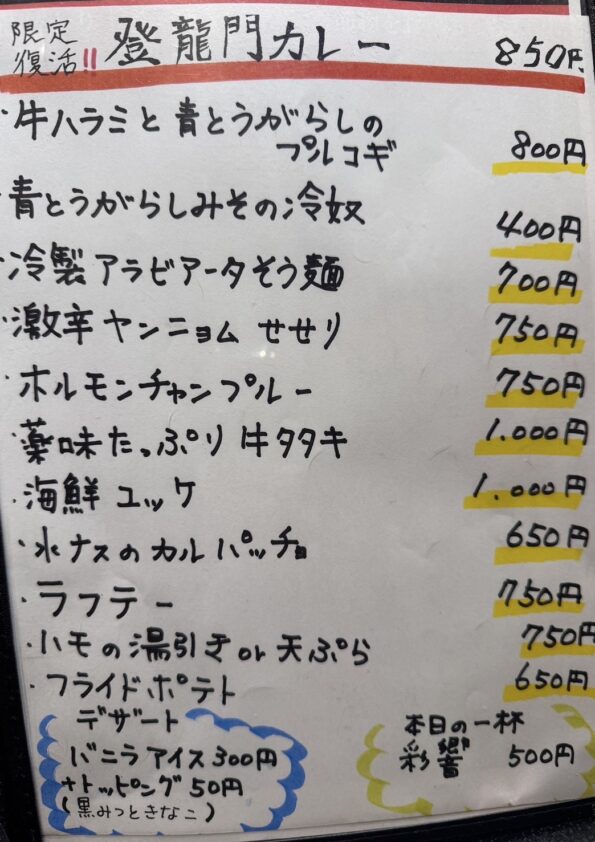 限定復活!! 登龍門カレー 850円
・牛ハラミと青とうがらしの
プルコギ 800円
・青とうがらしみその冷奴 400円
・冷製アラビアータそう麺 700円
・激辛ヤンニョムせせり 750円
・ホルモンチャンプルー 750円
・薬味たっぷり牛タタキ 1.000円
・海鮮ユッケ 1.000円
・水ナスのカルパッチョ 650円
・ラフテー 750円
・ハモの湯引きor天ぷら 750円
・フライドポテト 650円
デザート
バニラアイス300円
+トッピング50円
(黒みつときなこ)
本日の一杯
彩響 500円